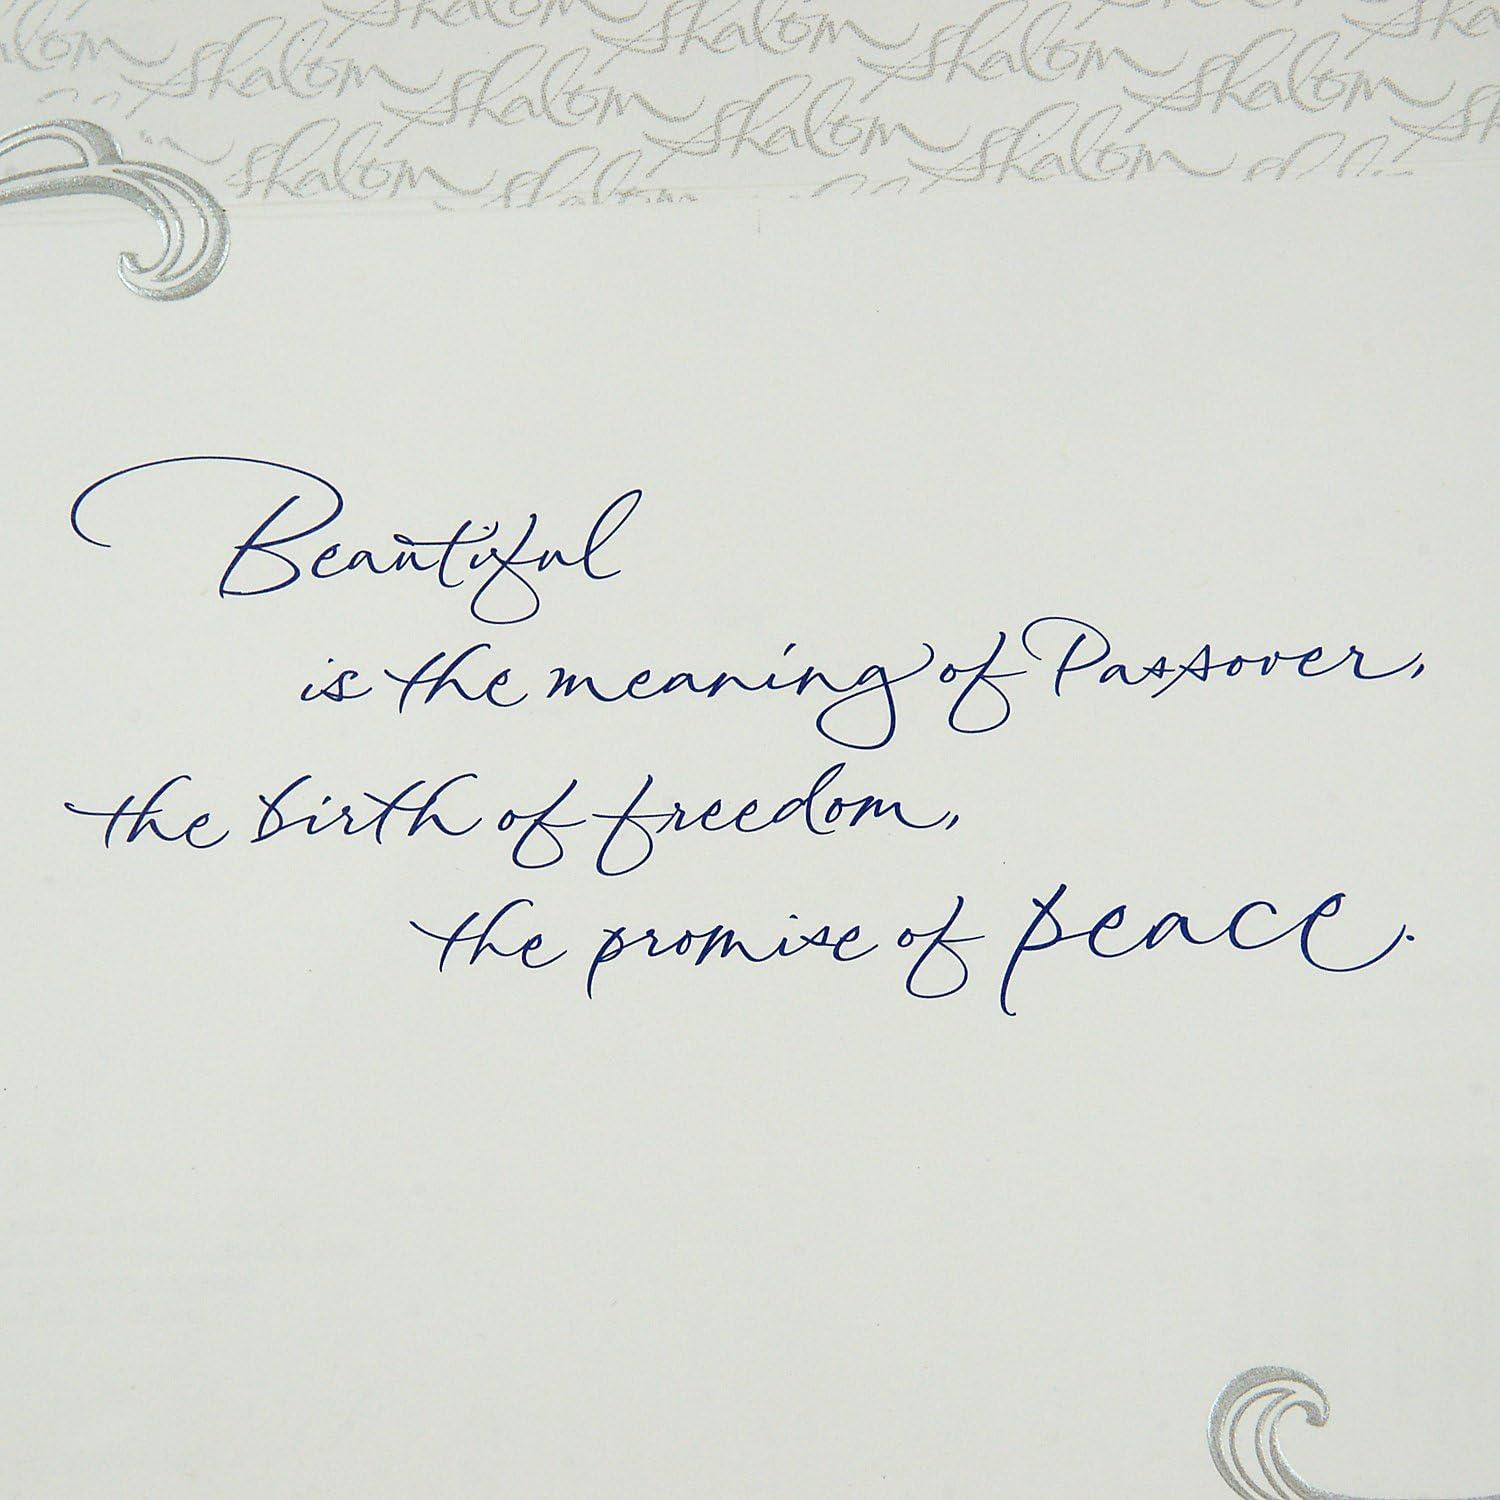 Shalom Shalom
Shalom Shalom Shalom Shalom Shalom
Shalom Shalom Shalom
Shalom Shalom Shalom
Beautiful
is the meaning of Passover,
the birth of freedom,
the promise of peace.